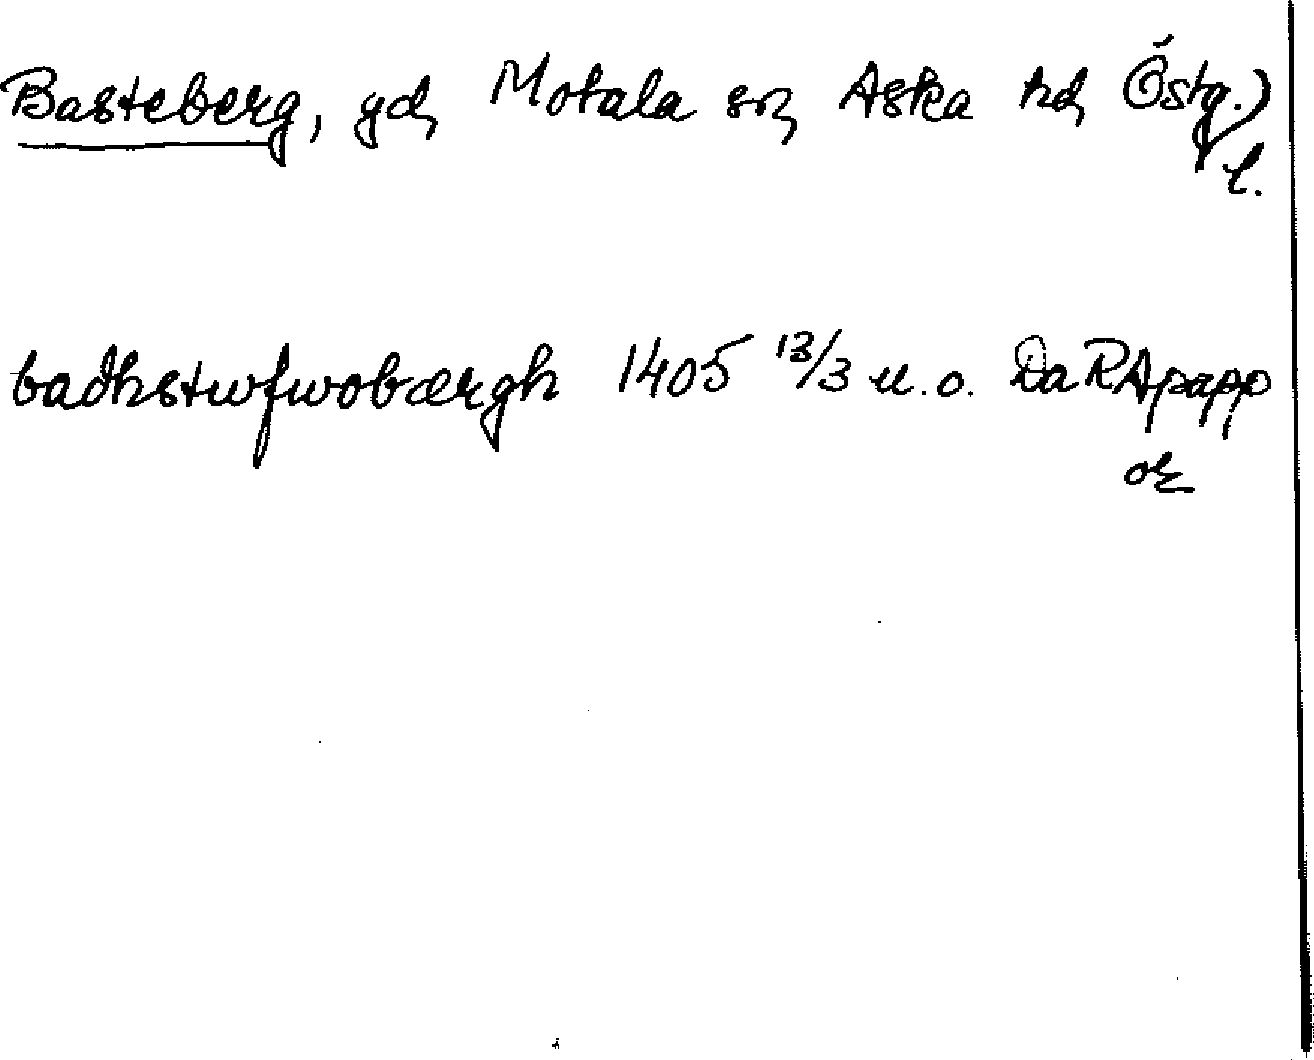 Basteberg, gd, Motala sn, Aska hd, Östg.)
l.
badhstwfwobærgh 1405 13/3 u.o. Da RApapp
or